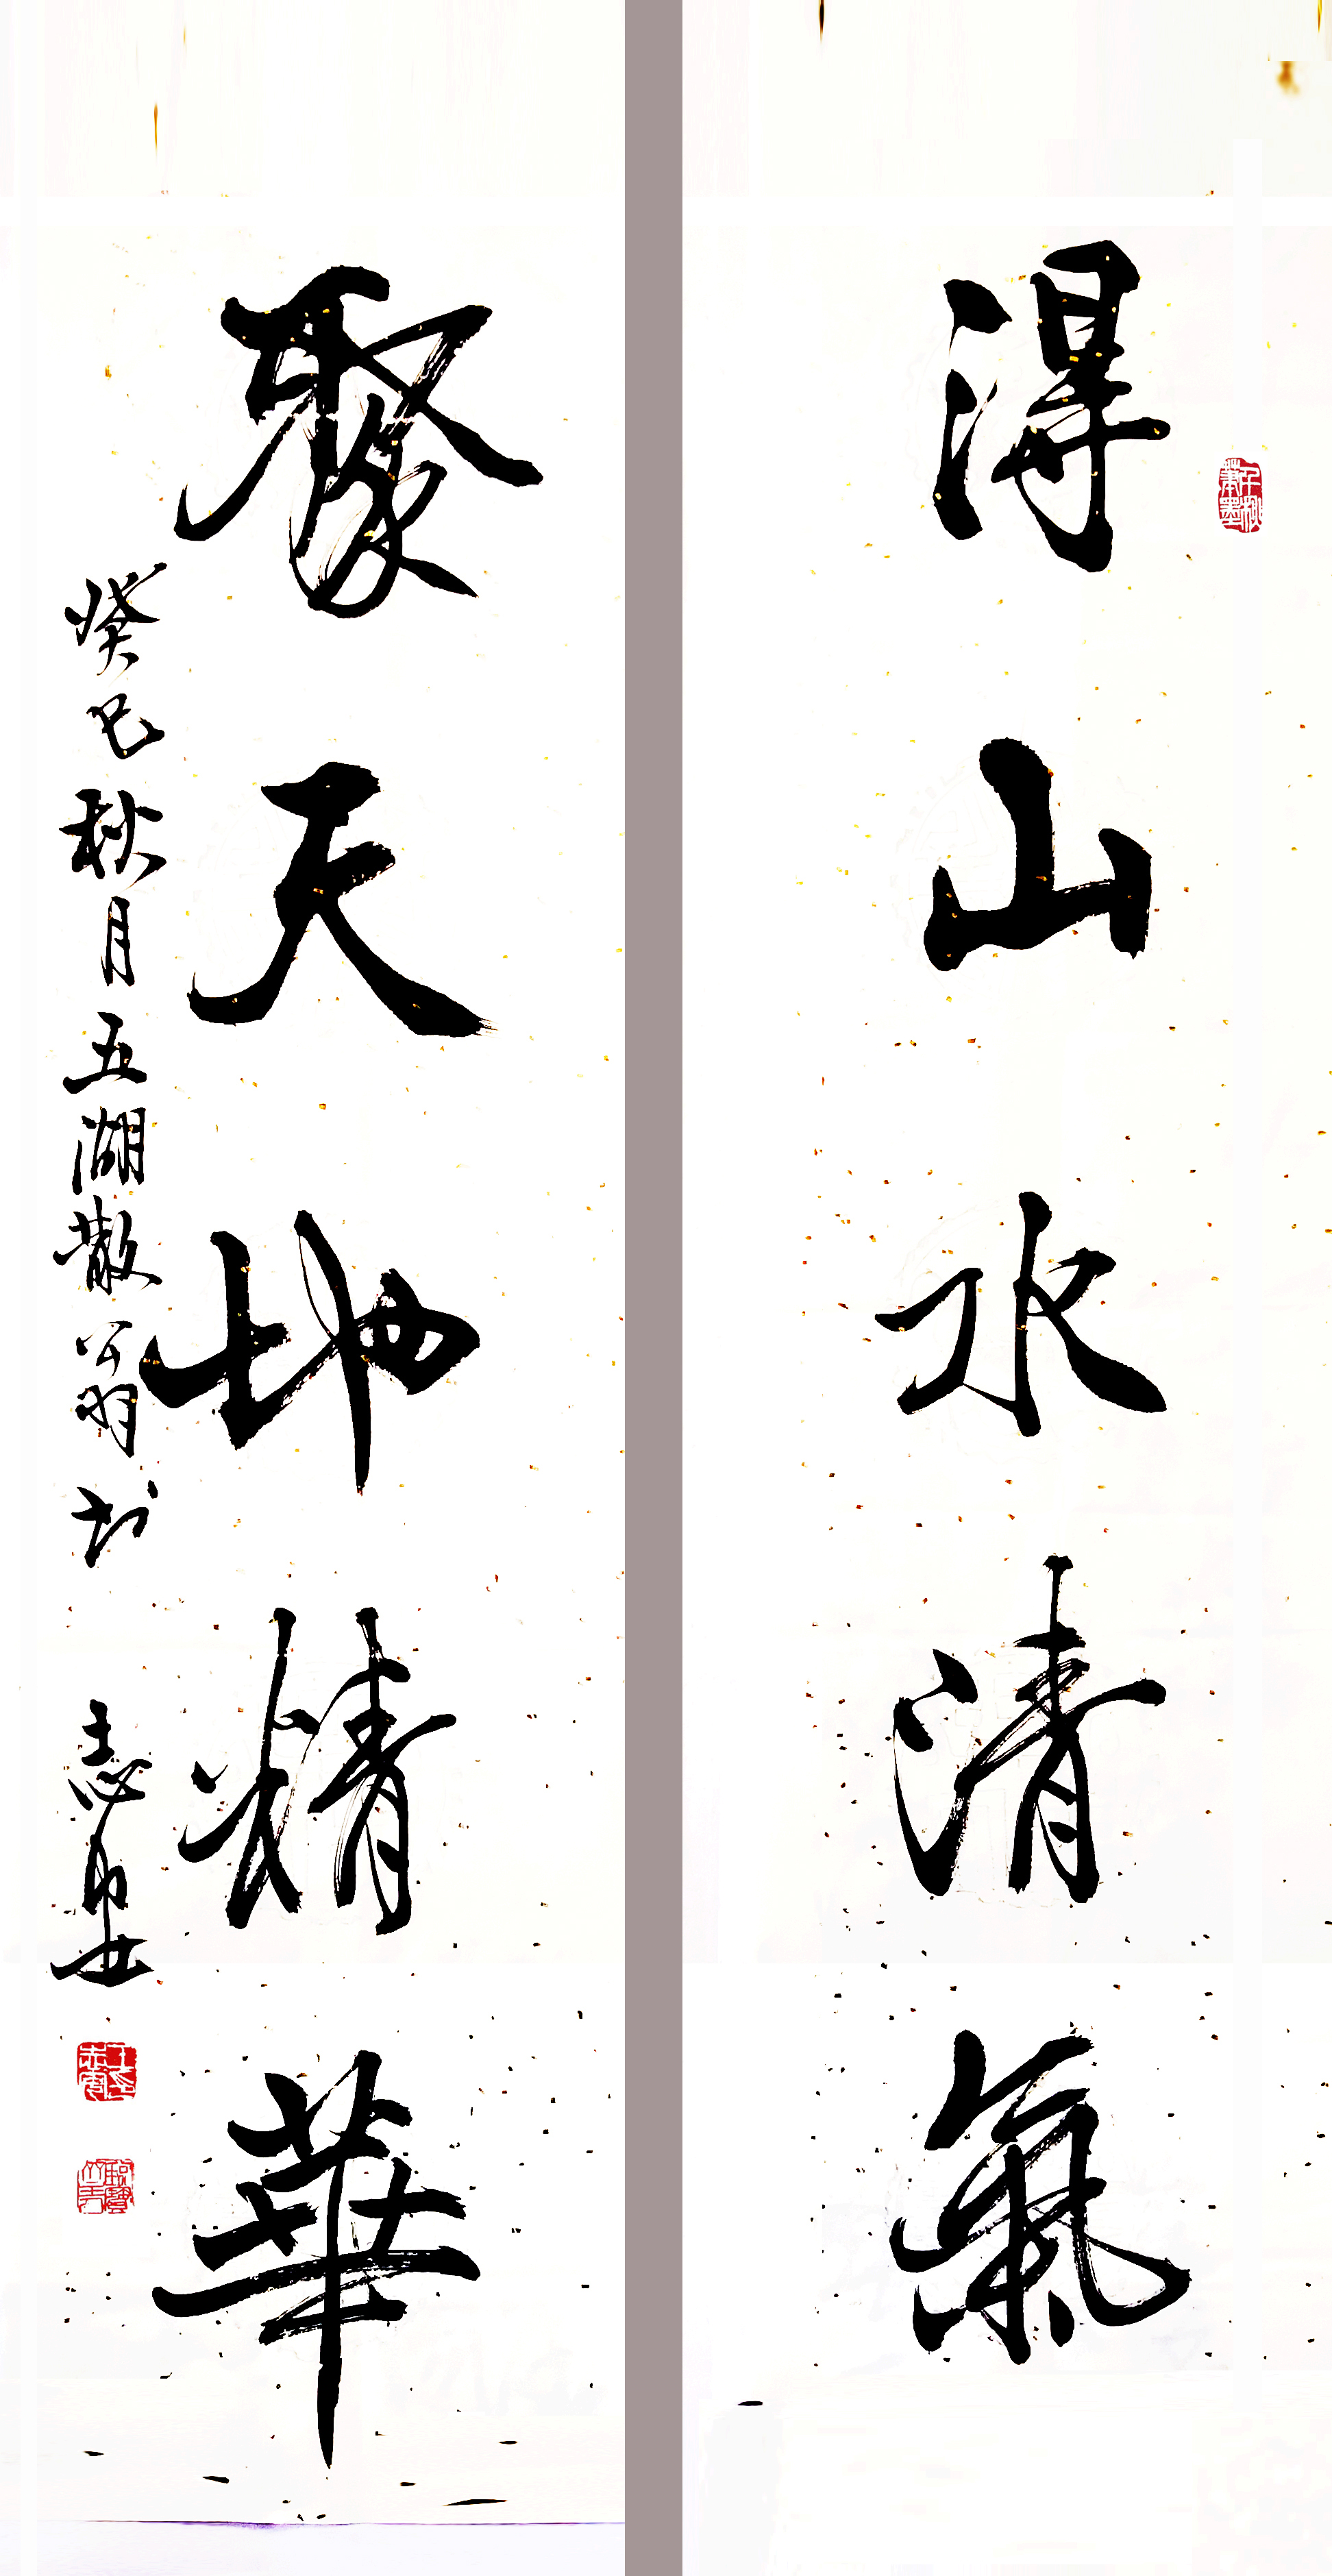 得山水清氣
聚天地精華
癸巳秋月五湖散翁书 志